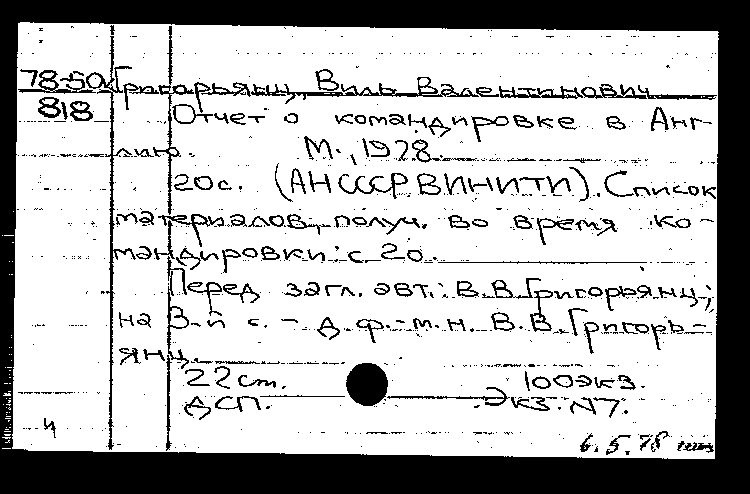 78-50 Григорьянц, Виль Валентинович
818 Отчет о командировке в Анг-
лию. М., 1978.
20с. (АН СССР ВИНИТИ). Список
материалов, получ. во время ко-
мандировки: с 20.
Перед загл. авт.: В.В.Григорьянц;
на 3-й с. - д.ф.-м.н. В.В.Григорь-
янц.
22 ст. 100экз.
ДСП. Экз. №7.
ч
6.5.78